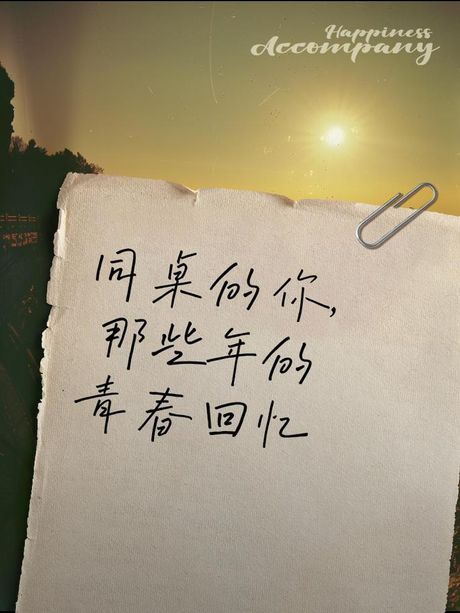 Happiness
Accompany
同桌的你,
那些年的
青春回忆